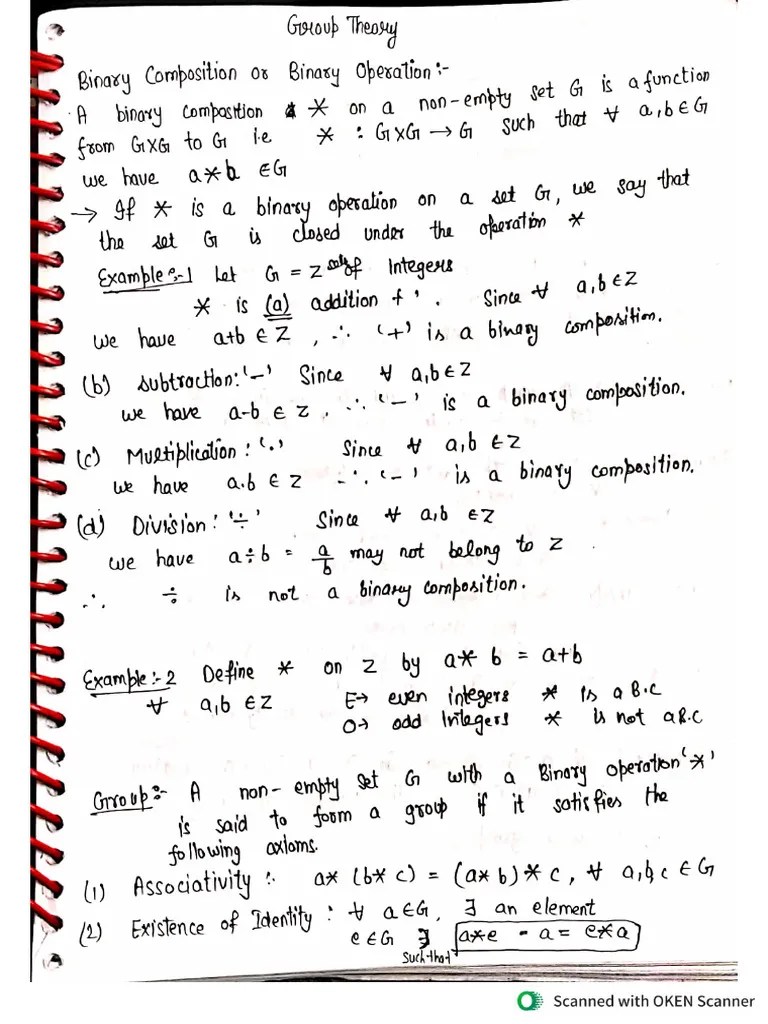 Group Theory
Binary Composition or Binary Operation :-
A binary composition * on a non-empty set G is a function
from G×G to G i.e * : G×G → G such that ∀ a,b ∈ G
we have a*b ∈ G
→ If * is a binary operation on a set G, we say that
the set G is closed under the operation *
Example :-1 Let G = Z set of Integers
* is (a) addition + '. Since ∀ a,b ∈ Z
we have a+b ∈ Z , ∴ '+' is a binary composition.
(b) Subtraction: '-' Since ∀ a,b ∈ Z
we have a-b ∈ Z , ∴ '-' is a binary composition.
(c) Multiplication : '.' Since ∀ a,b ∈ Z
we have a.b ∈ Z ∴ '-' is a binary composition.
(d) Division : '÷' Since ∀ a,b ∈ Z
we have a÷b = a/b may not belong to Z .
∴ ÷ is not a binary composition.
Example :- 2 Define * on Z by a* b = a+b
∀ a,b ∈ Z E→ even integers * is a B.C
O→ odd Integers * is not a B.C
Group :- A non-empty set G with a Binary operation '*'
is said to form a group if it satisfies the
following axioms.
(1) Associativity :. a* (b* c) = (a* b)* c, ∀ a,b,c ∈ G
(2) Existence of Identity : ∀ a∈G, ∃ an element
e ∈ G ∃ a*e = a = e*a
Such that
Scanned with OKEN Scanner